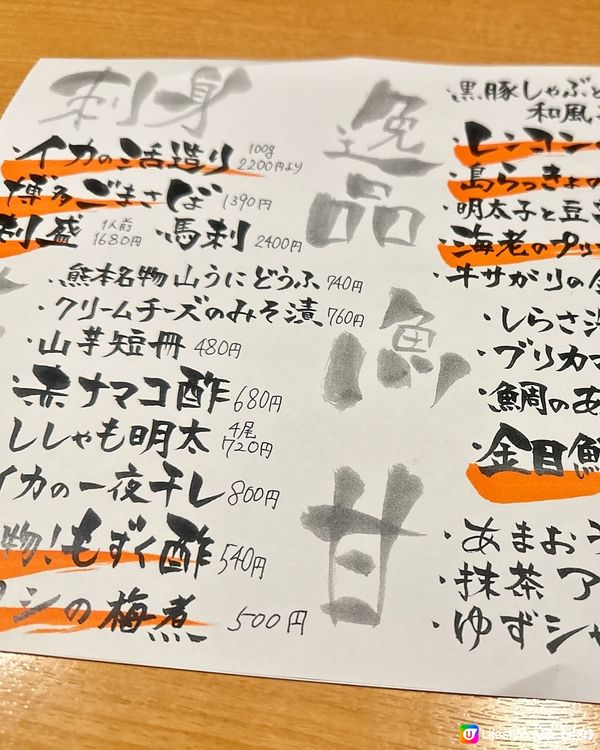 刺身
・イカの活造り 100g 2200円より
博多ごまさば 1390円
刺盛 1人前 1680円 ・馬刺 2400円
・熊本名物山うにどうふ 740円
・クリームチーズのみそ漬 760円
・山芋短冊 480円
・赤ナマコ酢 680円
ししゃも明太 4尾 720円
イカの一夜干し 800円
物!もずく酢 540円
シの梅煮 500円
逸品
・黒豚しゃぶと
和風
・レンコン
・島らっきょの
・明太子と豆
・海老のプリッ
・牛サガリの
魚
・しらさ
・ブリカマ
・鯛のあ
・金目鯛
甘
・あまおう
・抹茶ア
・ゆずシャ